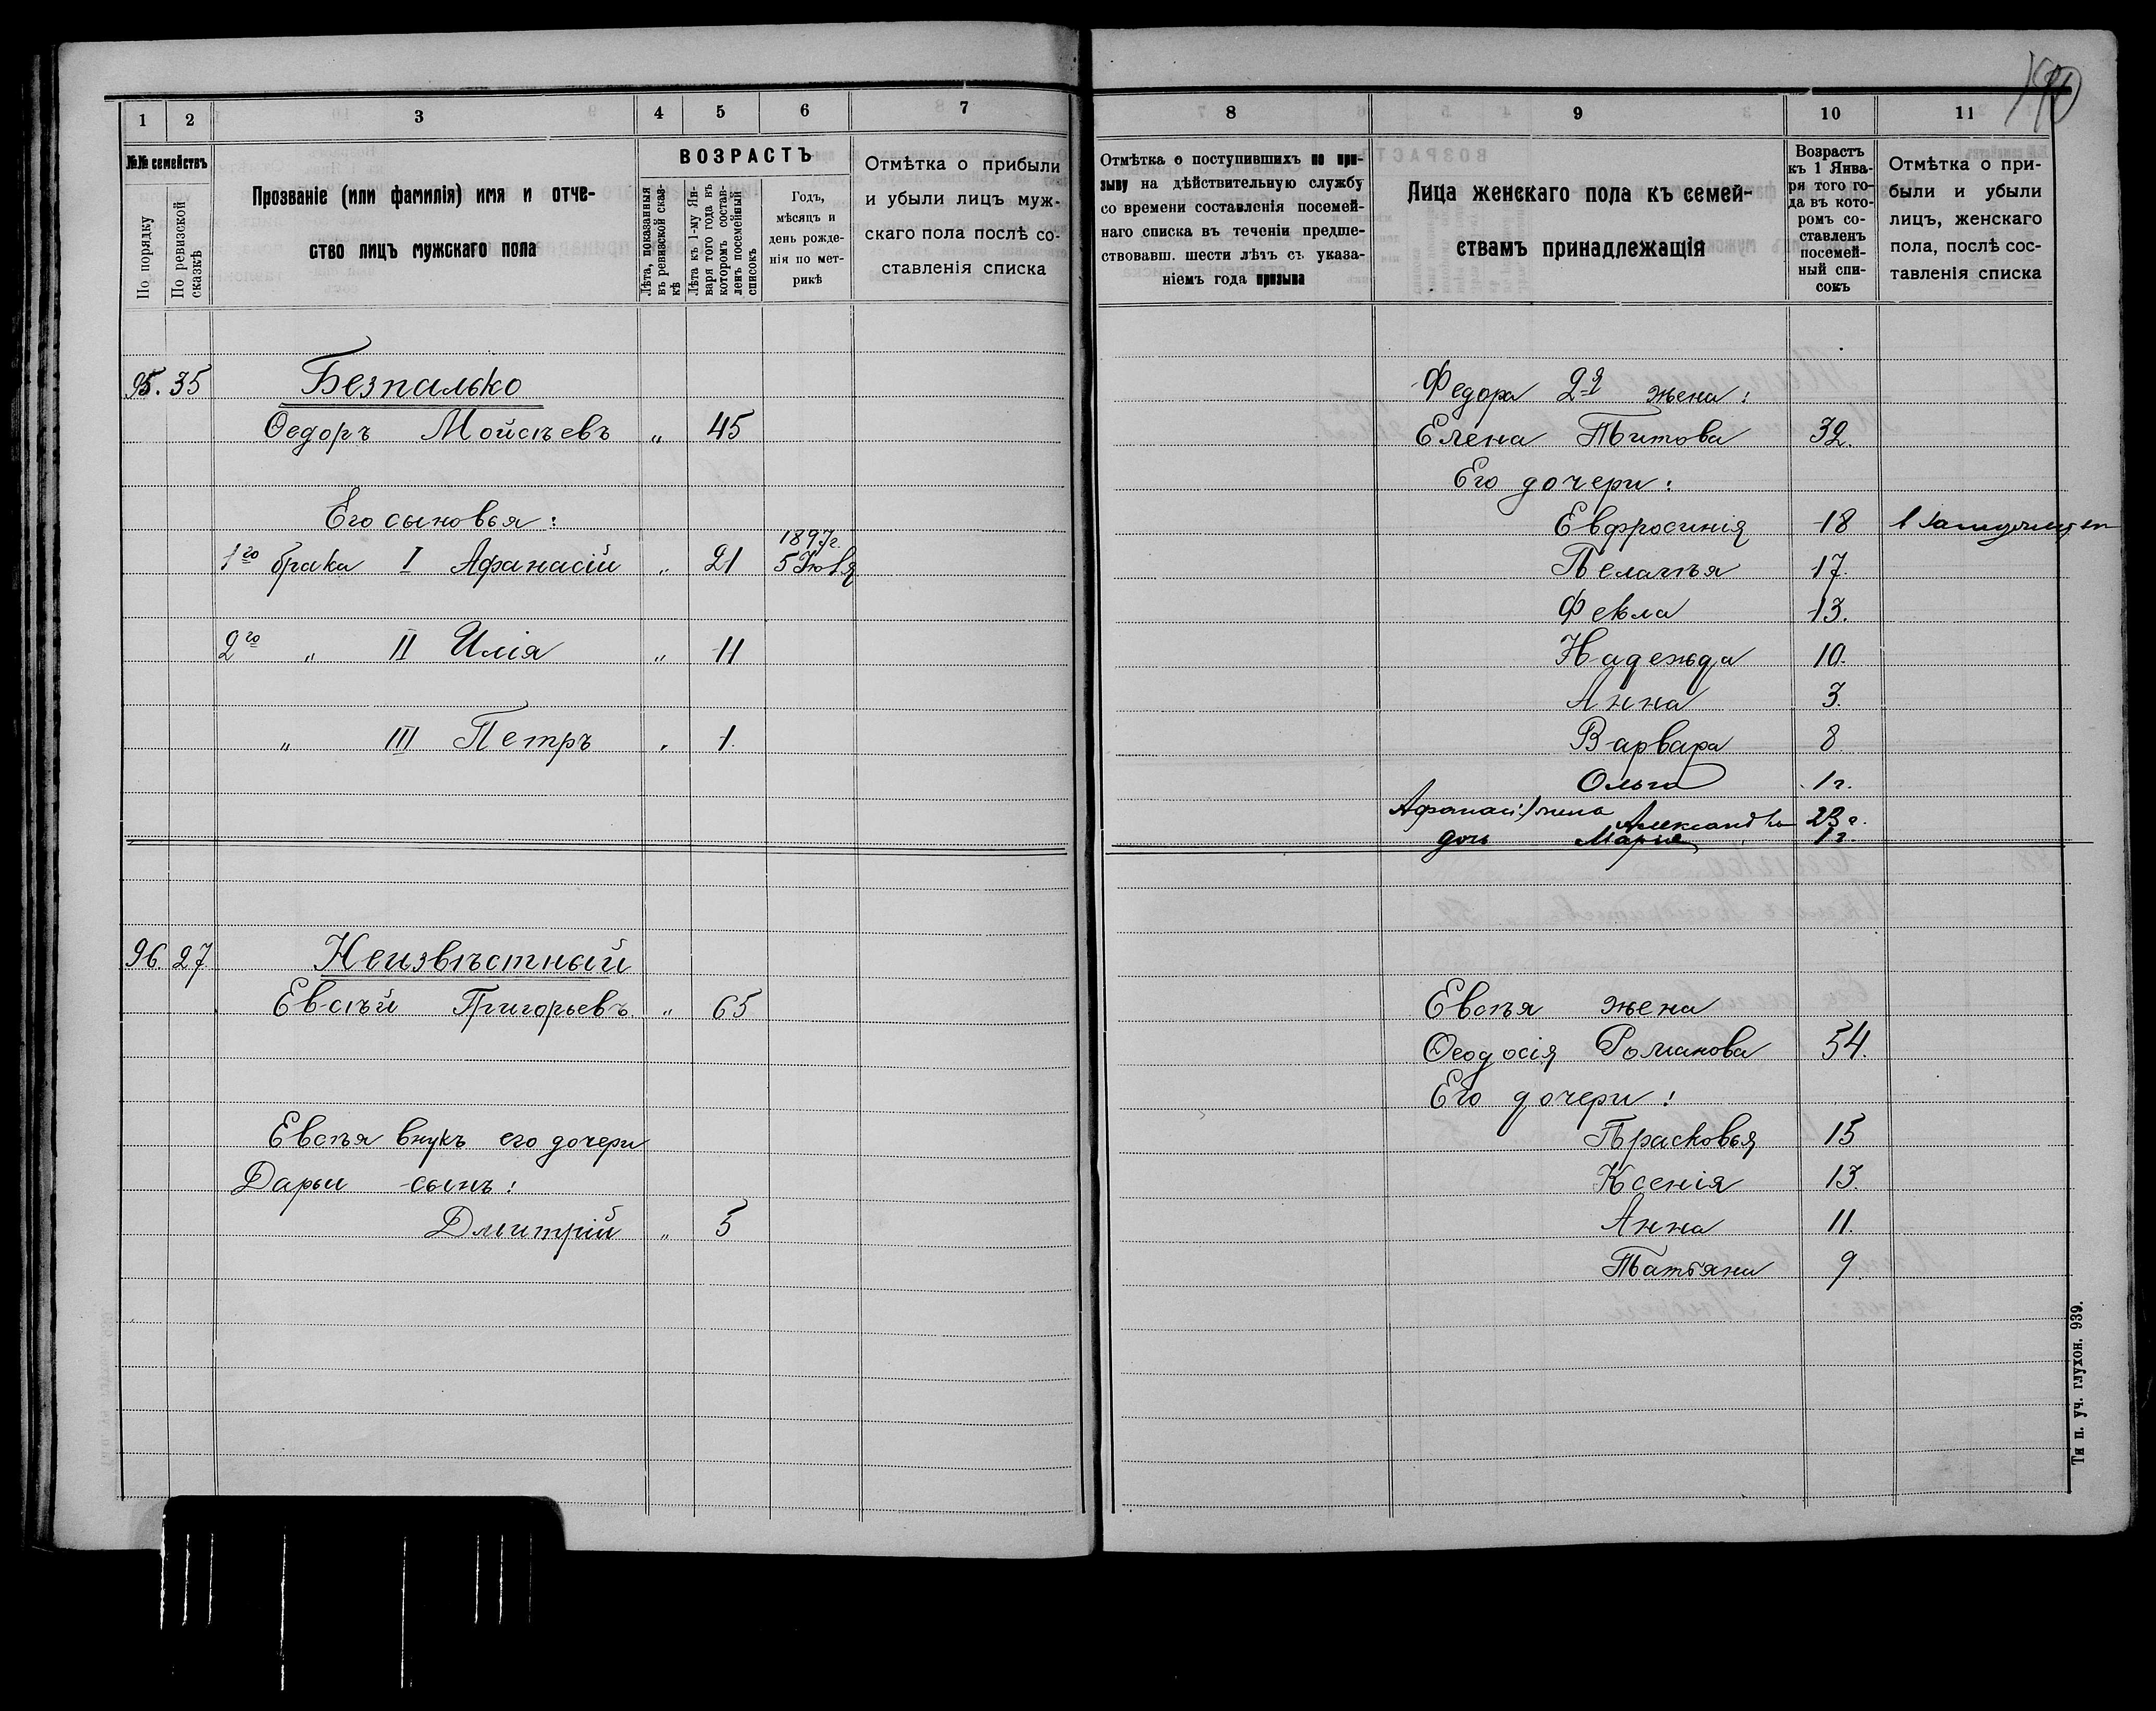 190
1 2 3 4 5 6 7
№№ семействъ
По порядку
По ревизской сказкѣ
Прозваніе (или фамилія) имя и отче-
ство лицъ мужскаго пола
ВОЗРАСТЪ
Лѣта, показанныя
въ ревизской сказ-
кѣ
Лѣта къ 1-му Ян-
варя того года въ
которомъ состав-
ленъ посемейный
списокъ
Годъ,
мѣсяцъ и
день рожде-
нія по мет-
рикѣ
Отмѣтка о прибыли
и убыли лицъ муж-
скаго пола послѣ со-
ставленія списка
95. 35 Безпалько
Ѳедоръ Мойсѣевъ „ 45
Его сыновья:
1897г.
1го брака I Афанасій „ 21 5 Юля
2го „ II Илія „ 11
„ III Петръ „ 1.
96. 27 Неизвѣстный
Евсѣй Григорьевъ „ 65
Евсѣя внукъ его дочери
Дарьи сынъ:
Дмитрій „ 5
8 9 10 11
Отмѣтка о поступившихъ по при-
зыву на дѣйствительную службу
со времени составленія посемей-
наго списка въ теченіи предше-
ствовавш. шести лѣтъ съ указа-
ніемъ года призыва
Лица женскаго пола къ семей-
ствамъ принадлежащія
Возрастъ
къ 1 Янва-
ря того го-
да въ кото-
ромъ со-
ставленъ
посемей-
ный спи-
сокъ
Отмѣтка о при-
были и убыли
лицъ, женскаго
пола, послѣ сос-
тавленія списка
Федора 2-я жена:
Елена Титова 32.
Его дочери:
Евфросинія 18
Пелагѣя 17.
Фекла 13.
Надежда 10.
Анна 3.
Варвара 8
Ольга 1г.
Афанасі: жена Александра 23 г.
дочь Марія 1г.
Евсѣя жена
Ѳеодосія Романова 54.
Его дочери:
Прасковья 15
Ксенія 13.
Анна 11.
Татьяна 9.
Ти п. уч. глухон. 939.